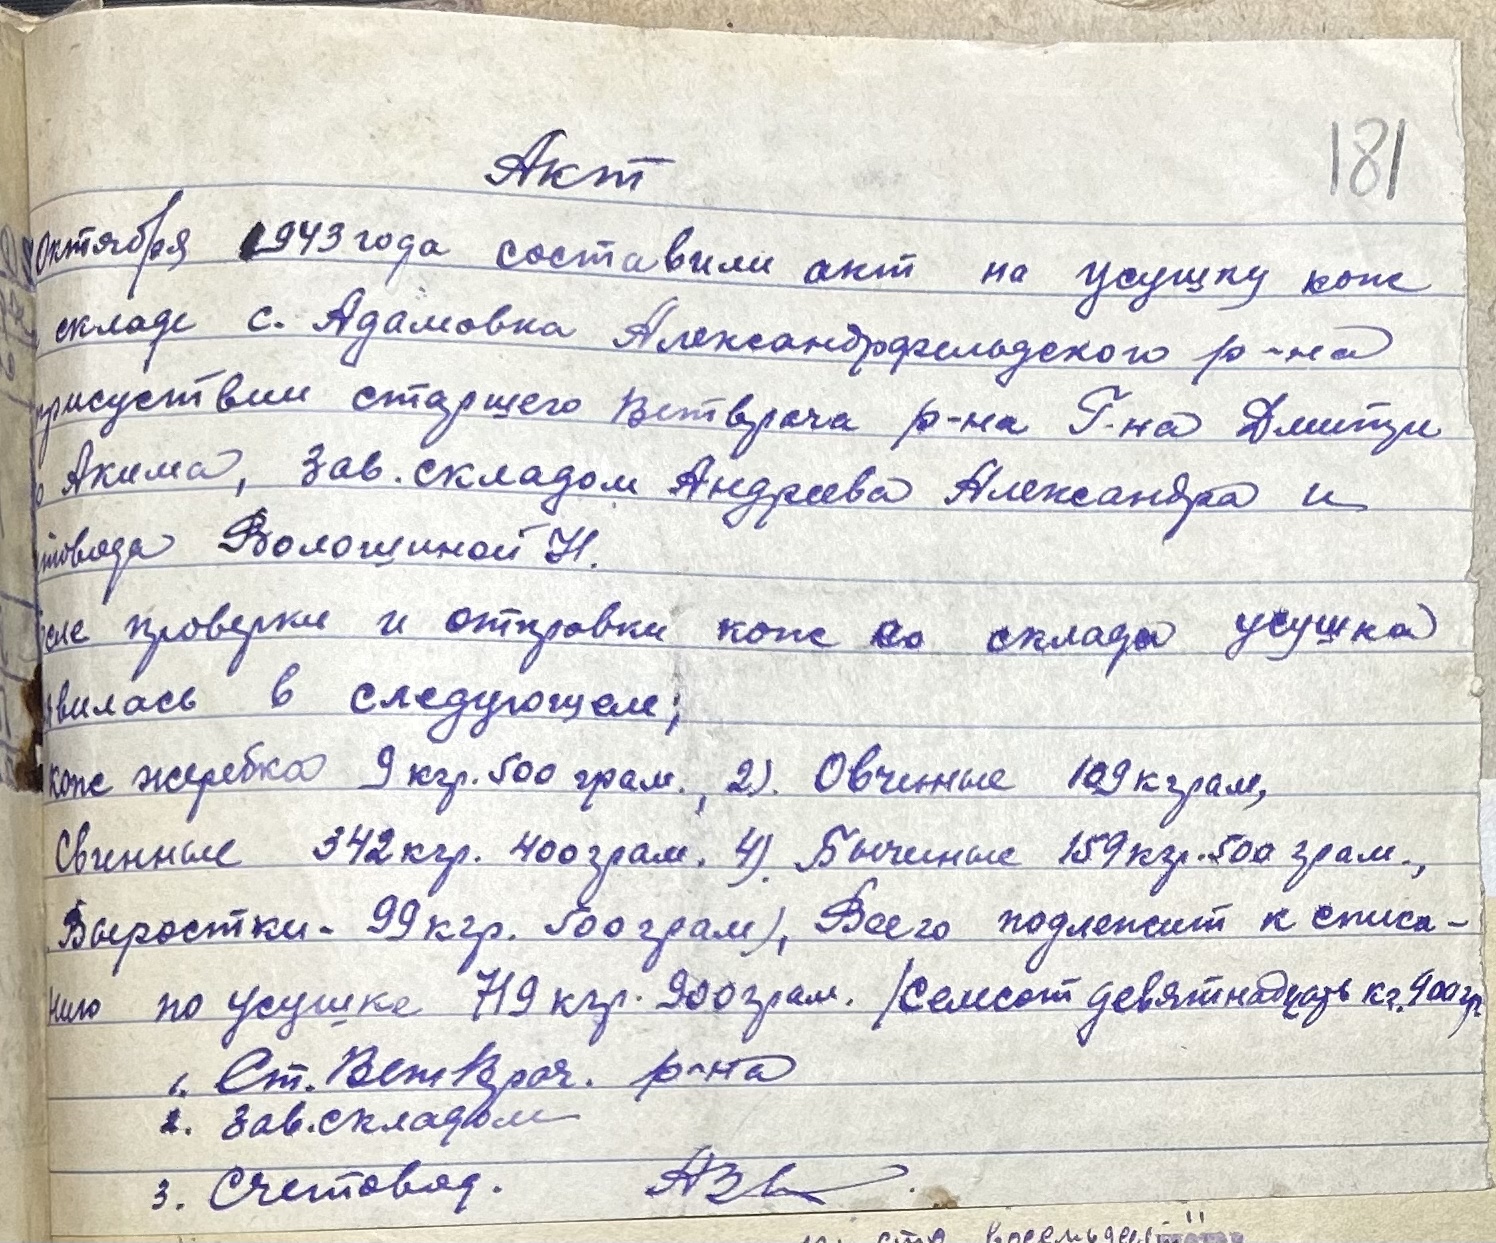 181
Акт
Октября 1943 года составили акт на усушку кож
складе с. Адамовка Александрфельдского р-на
присуствии старшего Ветврача р-на Г-на Дмитри
Акима, Зав. складом Андреева Александра и
товода Волошиной Н.
сле проверки и отправки кож со склада усушка
явилась в следующем;
кож жеребка 9 кгр. 500 грам., 2). Овчинные 109 кграм,
Свинные 342 кгр. 400 грам. 4). Бычиные 159 кгр. 500 грам.,
Выростки - 99 кгр. 500 грам), Всего подлежит к списа-
нию по усушке 719 кгр. 900 грам. /Семсот девятнадцать кг. 900 гр
1. Ст. Вет Врач. р-на
2. Зав. складом
3. Счетовод.